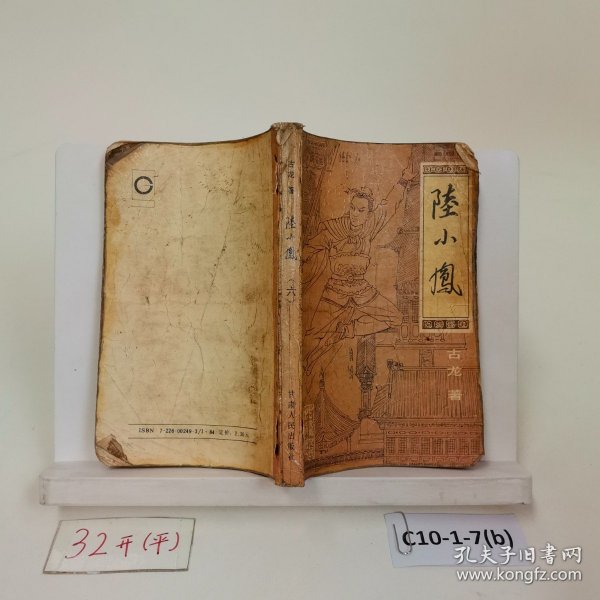 陸小鳳
古龙 著
古龙 著
陸小鳳
(六)
甘肃人民出版社
ISBN 7-226-00249-3/I·84 定价:2.30元
32开(平)
C10-1-7(b)
孔夫子旧书网
www.kongfz.com